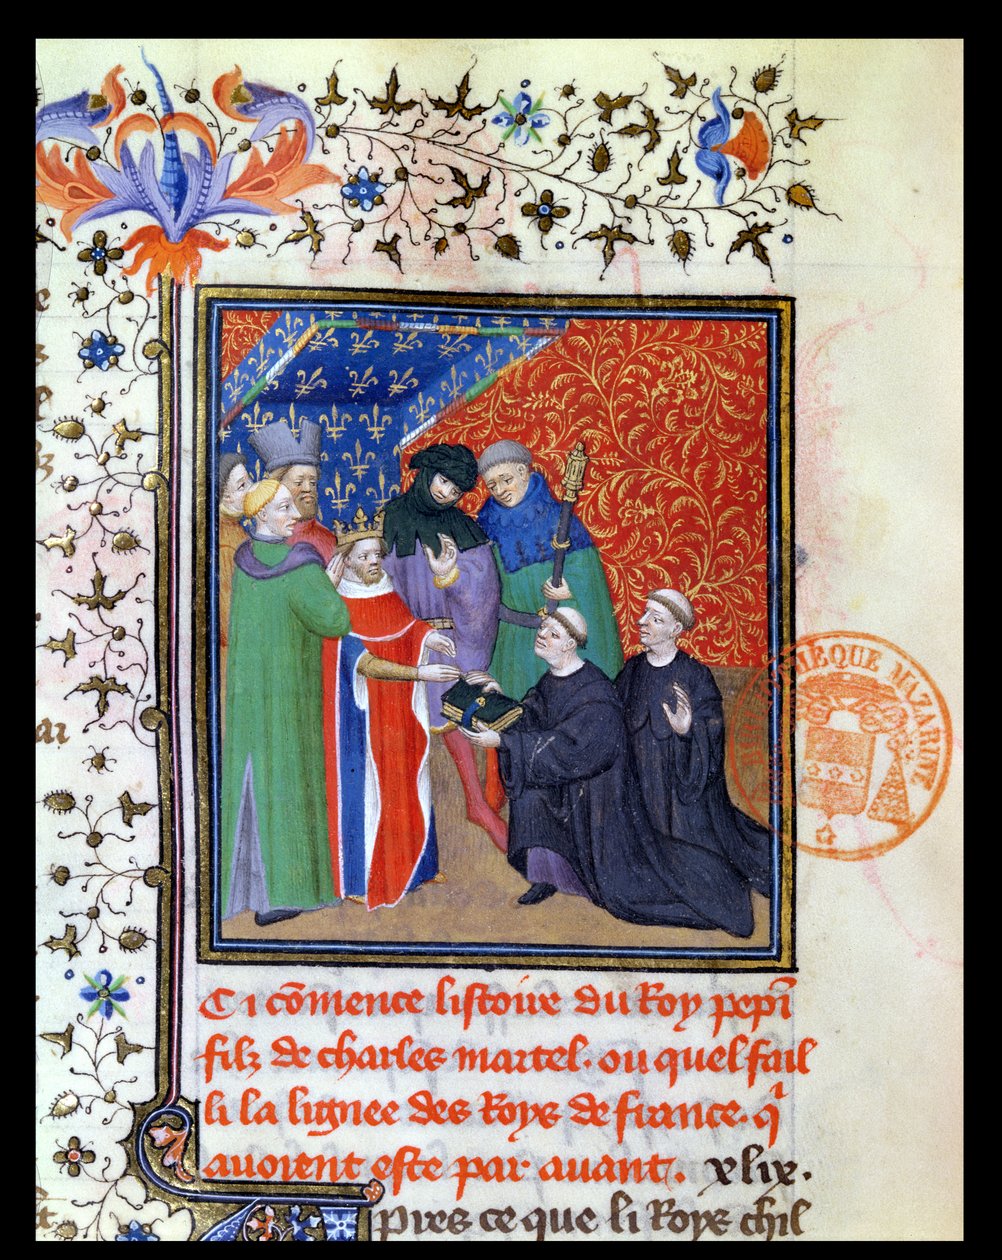 Ci cōmence listoire du Roy pepī
filz de charles martel. ou quel fail
li la lignee des Roys de france. q̄
avoient este par avant. xlix.
pres ce que li Roys chil
BIBLIOTHÈQUE MAZARINE